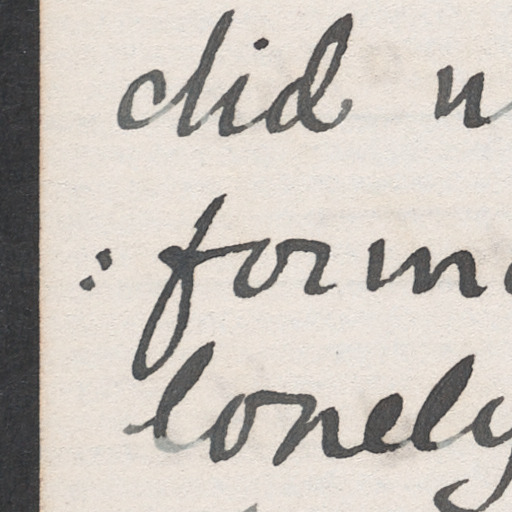 did
: form
lonely